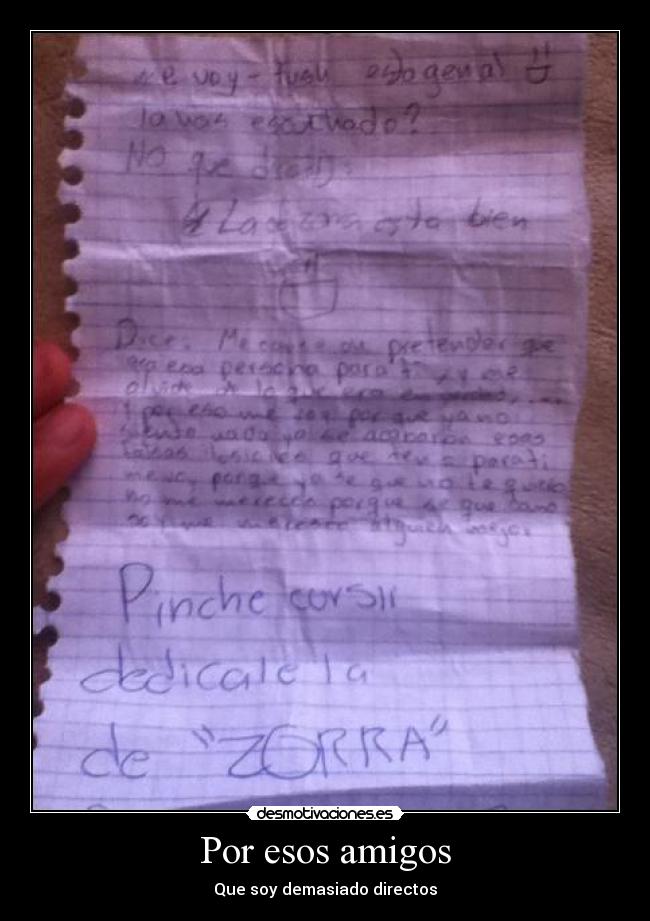 Me voy - tush esta genial
la has escuchado?
No que dice
La cancion esta bien
Dice: Me canse de pretender que
era esa persona para ti y me
olvide de lo que era
y por eso me voy por que ya no
siento nada ya se acabaron esas
falsas que para ti
me voy porque ya se que no te quiero
no me mereces porque se que
me merezco alguien mejor
Pinche cursii
dedicale la
de "ZORRA"
desmotivaciones.es
Por esos amigos
Que soy demasiado directos